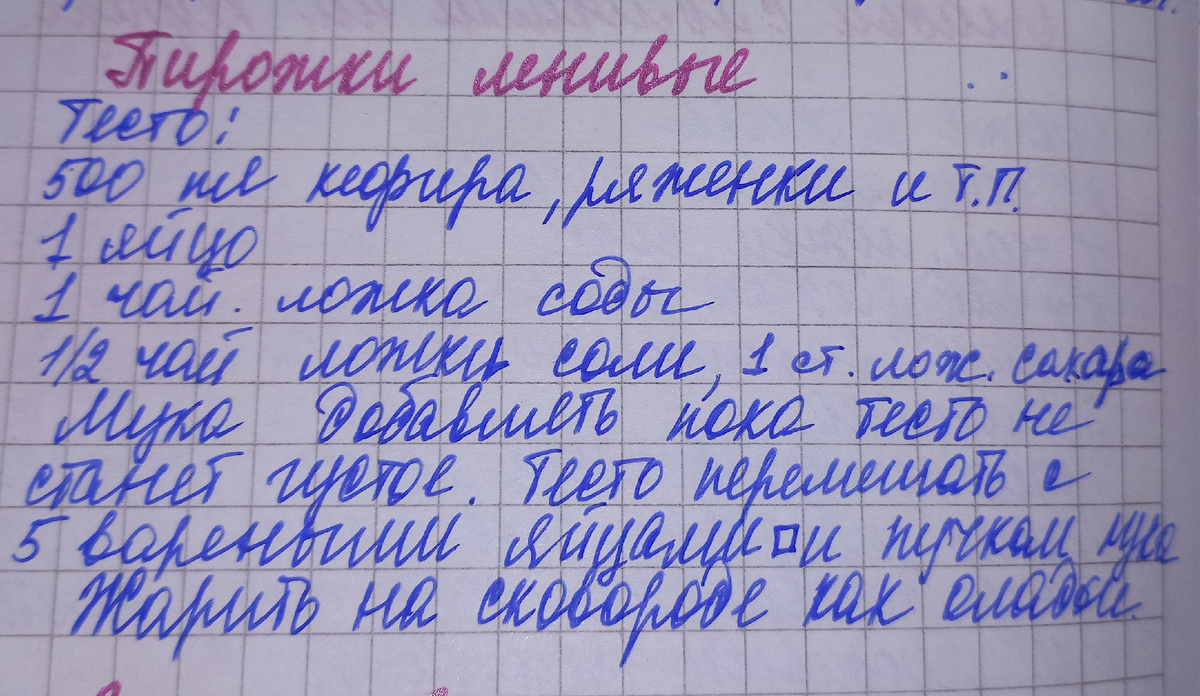 Пирожки ленивые
Тесто:
500 мл кефира, ряженки и т.п.
1 яйцо
1 чай. ложка соды
1/2 чай ложки соли, 1 ст. лож. сахара
Мука добавлять пока тесто не
станет густое. Тесто перемешать с
5 вареными яйцами и пучком лука
Жарить на сковороде как оладьи.